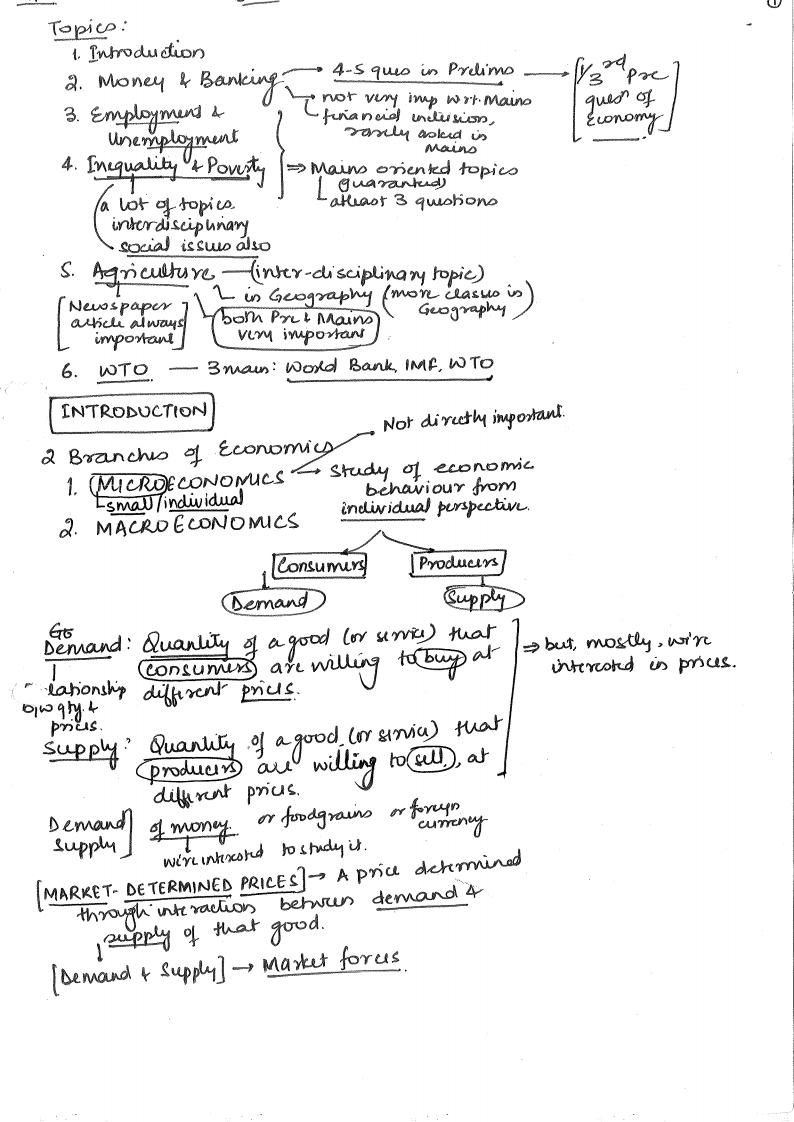 ①
Topics:
1. Introduction
2. Money & Banking → 4-5 ques in Prelims → [1/3rd Pre
ques⁠n of
Economy]
not very imp wrt. Mains
financial inclusion,
rarely asked in
Mains
3. Employment &
Unemployment
4. Inequality & Poverty
⇒ Mains oriented topics
(guaranteed)
atleast 3 questions
a lot of topics
interdisciplinary
social issues also
5. Agriculture — (inter-disciplinary topic)
in Geography (more classes in
Geography)
[Newspaper
article always
important]
both Pre & Mains
very important
6. WTO — 3 main: World Bank, IMF, WTO
INTRODUCTION
2 Branches of Economics
Not directly important.
1. MICROECONOMICS → Study of economic
behaviour from
individual perspective.
small/individual
2. MACROECONOMICS
Consumers Producers
Demand Supply
Demand: Quantity of a good (or service) that
consumers are willing to buy at
different prices.
lationship
b/w qty. &
prices.
Supply: Quantity of a good (or service) that
producers are willing to sell, at
different prices.
⇒ but, mostly, we're
interested in prices.
Demand
Supply] of money or foodgrains or foreign
currency
we're interested to study it.
[MARKET-DETERMINED PRICES] → A price determined
through interaction between demand &
supply of that good.
[Demand & Supply] → Market forces.